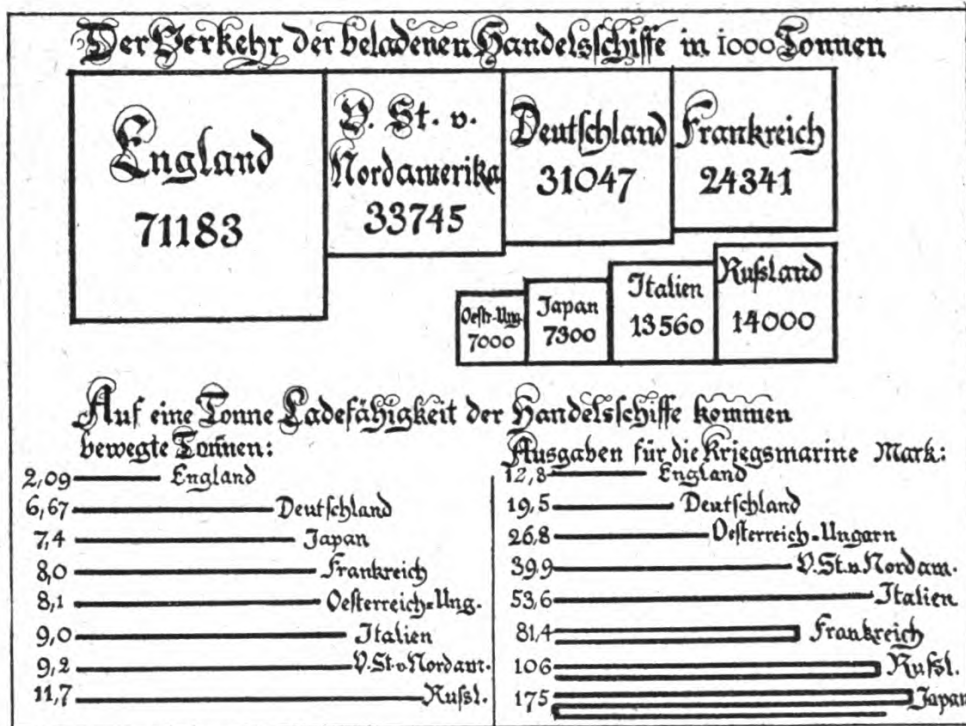 Der Verkehr der beladenen Handelsschiffe in 1000 Tonnen
England
71183
V. St. v.
Nordamerika
33745
Deutschland
31047
Frankreich
24341
Oestr-Ung.
7000
Japan
7300
Italien
13560
Russland
14000
Auf eine Tonne Ladefähigkeit der Handelsschiffe kommen
bewegte Tonnen:
2,09 England
6,67 Deutschland
7,4 Japan
8,0 Frankreich
8,1 Oesterreich-Ung.
9,0 Italien
9,2 V.St.v.Nordam.
11,7 Russl.
Ausgaben für die Kriegsmarine Mark:
12,8 England
19,5 Deutschland
26,8 Oesterreich-Ungarn
39,9 V.St.v.Nordam.
53,6 Italien
81,4 Frankreich
106 Russl.
175 Japan